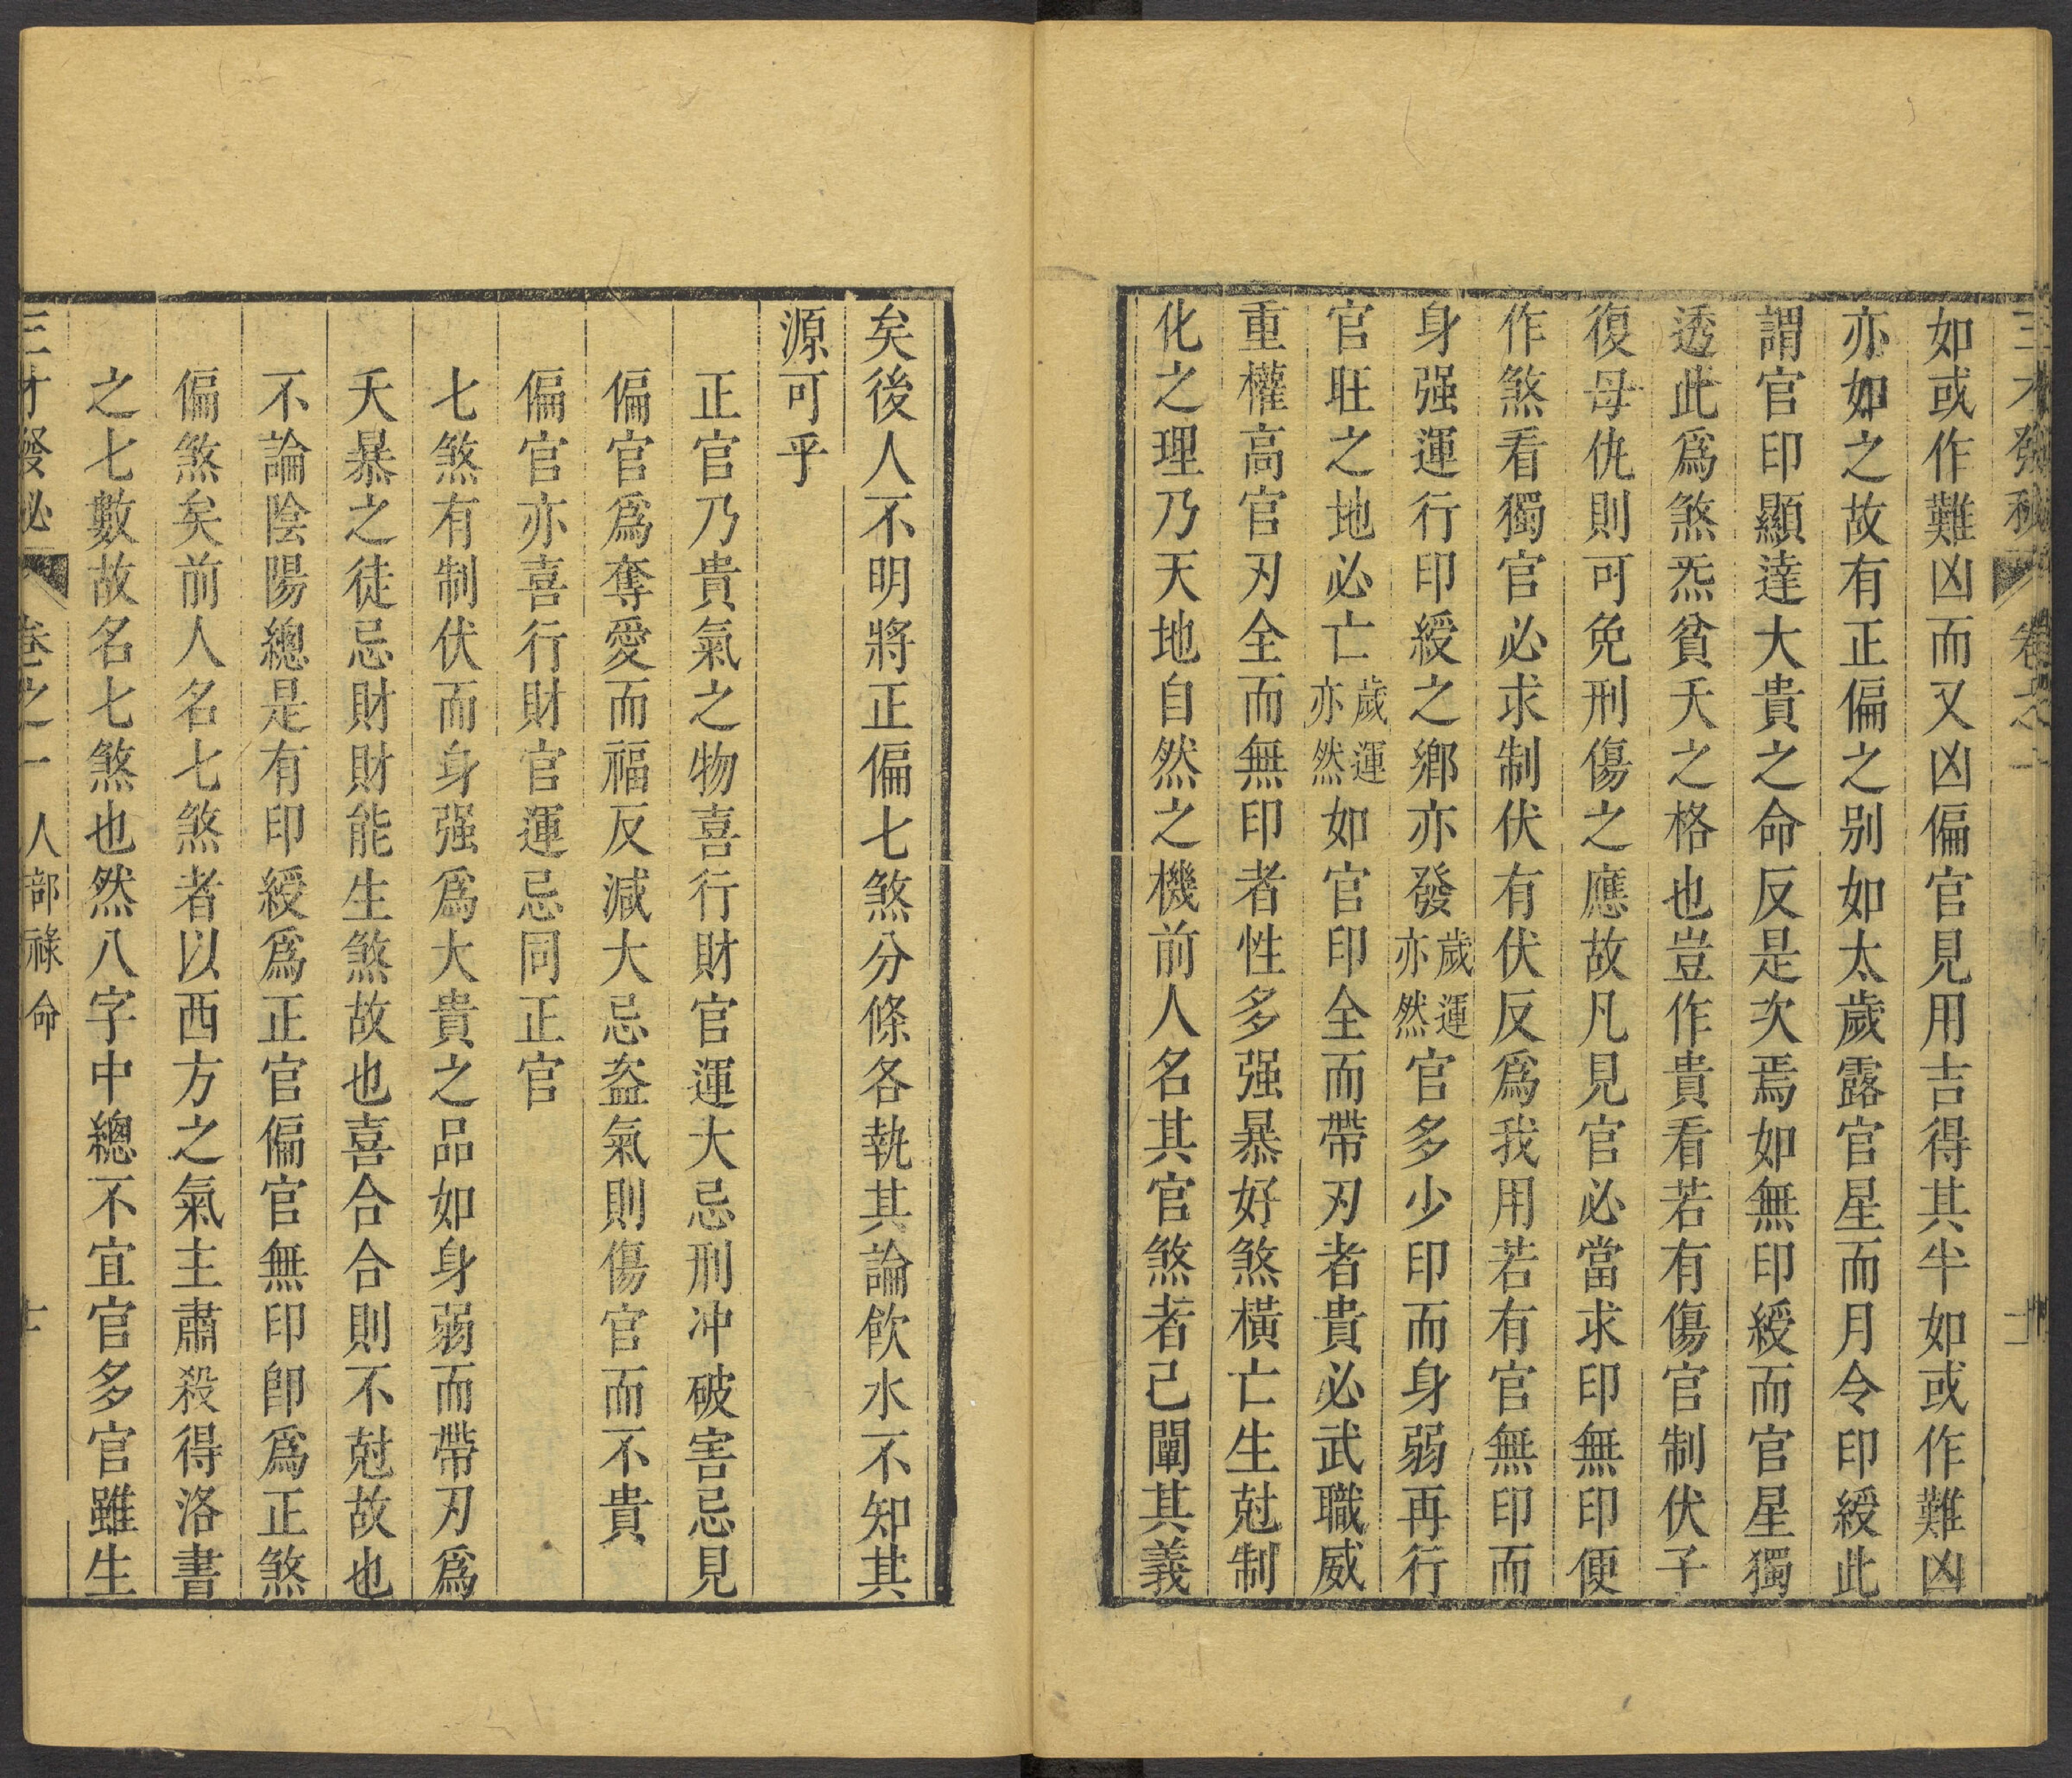 三才發秘 卷之一
如或作難凶而又凶偏官見用吉得其半如或作難凶
亦如之故有正偏之别如太歲露官星而月令印綬此
謂官印顯達大貴之命反是次焉如無印綬而官星獨
透此爲煞炁貧夭之格也豈作貴看若有傷官制伏子
復母仇則可免刑傷之應故凡見官必當求印無印便
作煞看獨官必求制伏有伏反爲我用若有官無印而
身强運行印綬之鄉亦發歲運亦然官多少印而身弱再行
官旺之地必亡歲運亦然如官印全而帶刃者貴必武職威
重權高官刃全而無印者性多强暴好煞橫亡生尅制
化之理乃天地自然之機前人名其官煞者己闡其義
矣後人不明將正偏七煞分條各執其論飲水不知其
源可乎
正官乃貴氣之物喜行財官運大忌刑冲破害忌見
偏官爲奪愛而福反減大忌盗氣則傷官而不貴
偏官亦喜行財官運忌同正官
七煞有制伏而身强爲大貴之品如身弱而帶刃爲
夭暴之徒忌財財能生煞故也喜合合則不尅故也
不論陰陽總是有印綬爲正官偏官無印卽爲正煞
偏煞矣前人名七煞者以西方之氣主肅殺得洛書
之七數故名七煞也然八字中總不宜官多官雖生
三才發秘 卷之一 人部祿命